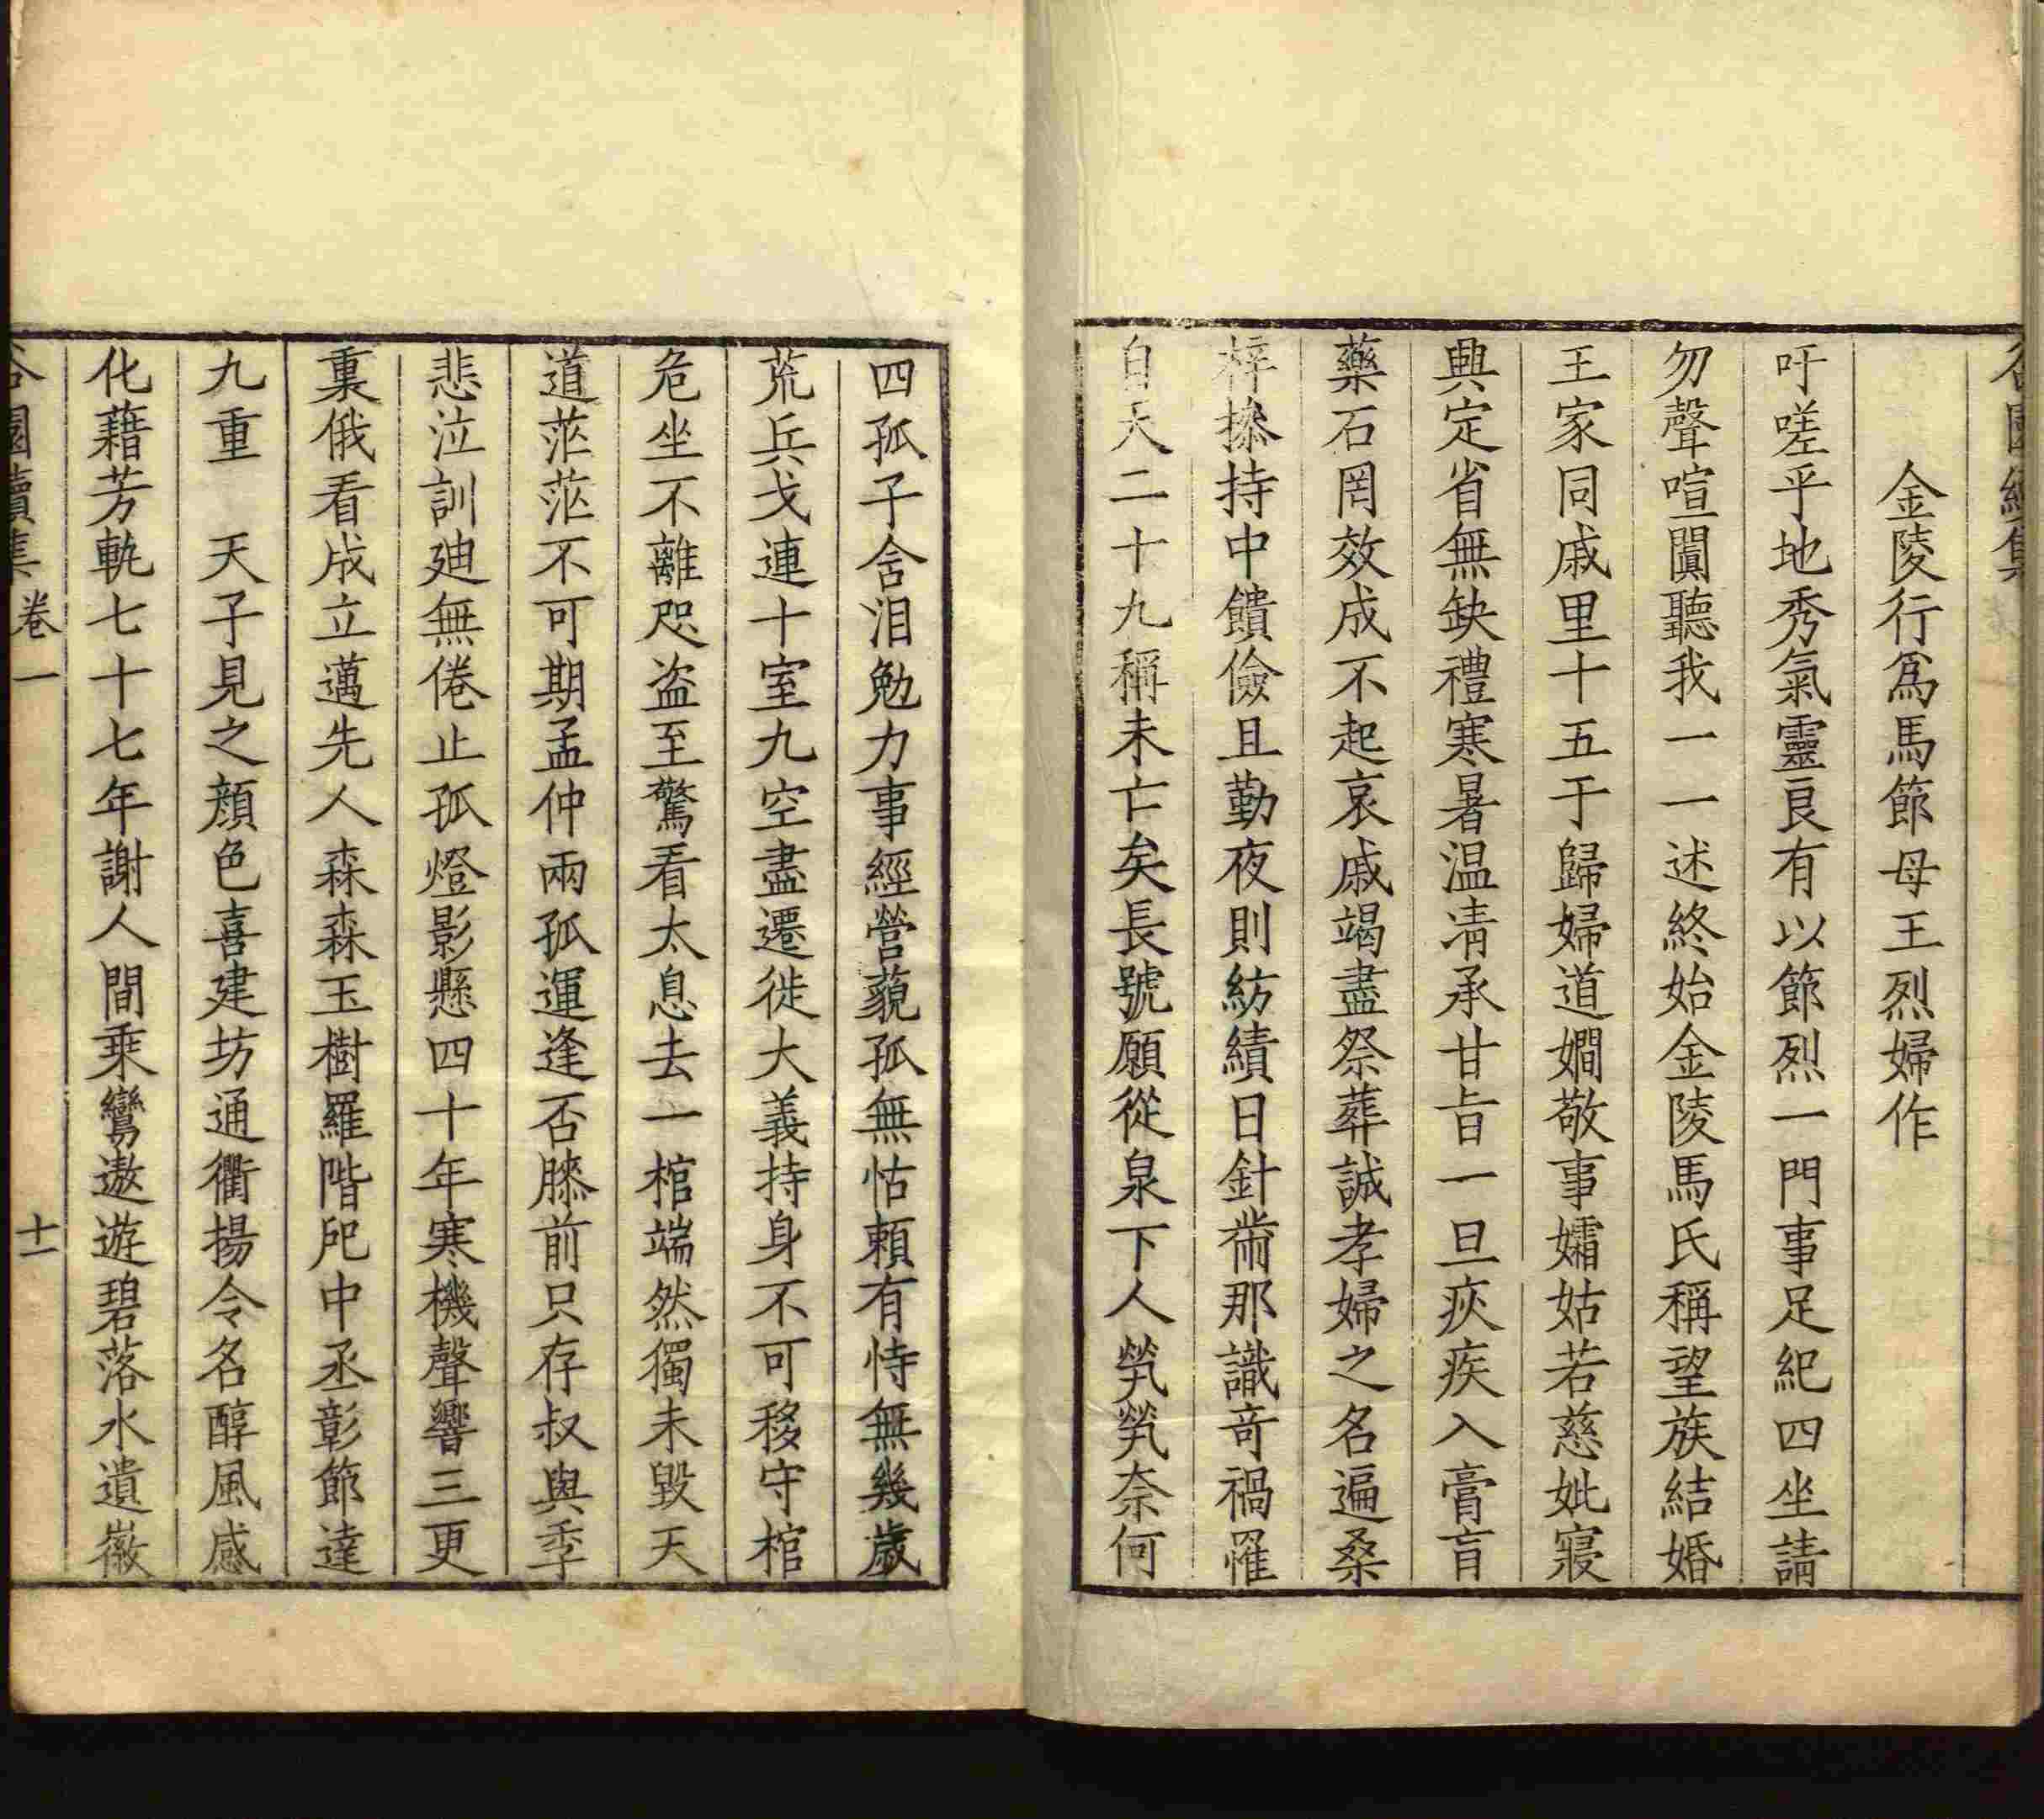 谷園續集
金陵行爲馬節母王烈婦作
吁嗟乎地秀氣靈良有以節烈一門事足紀四坐請
勿聲喧闐聽我一一述終始金陵馬氏稱望族結婚
王家同戚里十五于歸婦道嫺敬事孀姑若慈妣寢
興定省無缺禮寒暑温凊承甘旨一旦疢疾入膏肓
藥石罔效成不起哀戚竭盡祭葬誠孝婦之名遍桑
梓摻持中饋儉且勤夜則紡績日針黹那識奇禍罹
自天二十九稱未亡矣長號願從泉下人煢煢奈何
四孤子含泪勉力事經營藐孤無怙賴有恃無幾歲
荒兵戈連十室九空盡遷徙大義持身不可移守棺
危坐不離咫盗至驚看太息去一棺端然獨未毀天
道茫茫不可期孟仲兩孤運逢否膝前只存叔與季
悲泣訓廸無倦止孤燈影懸四十年寒機聲響三更
裏俄看成立邁先人森森玉樹羅階戺中丞彰節達
九重　天子見之顔色喜建坊通衢揚令名醇風感
化藉芳軌七十七年謝人間乗鸞遨遊碧落水遺徽
谷園續集 卷一 十一